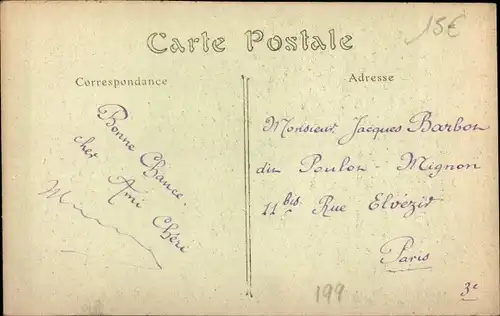 Carte Postale
15€
Correspondance
Adresse
Bonne Chance
cher Ami Chéri
M
Monsieur Jacques Barbon
dit Poulot - Mignon
11 bis Rue Elvézir
Paris
3e
199